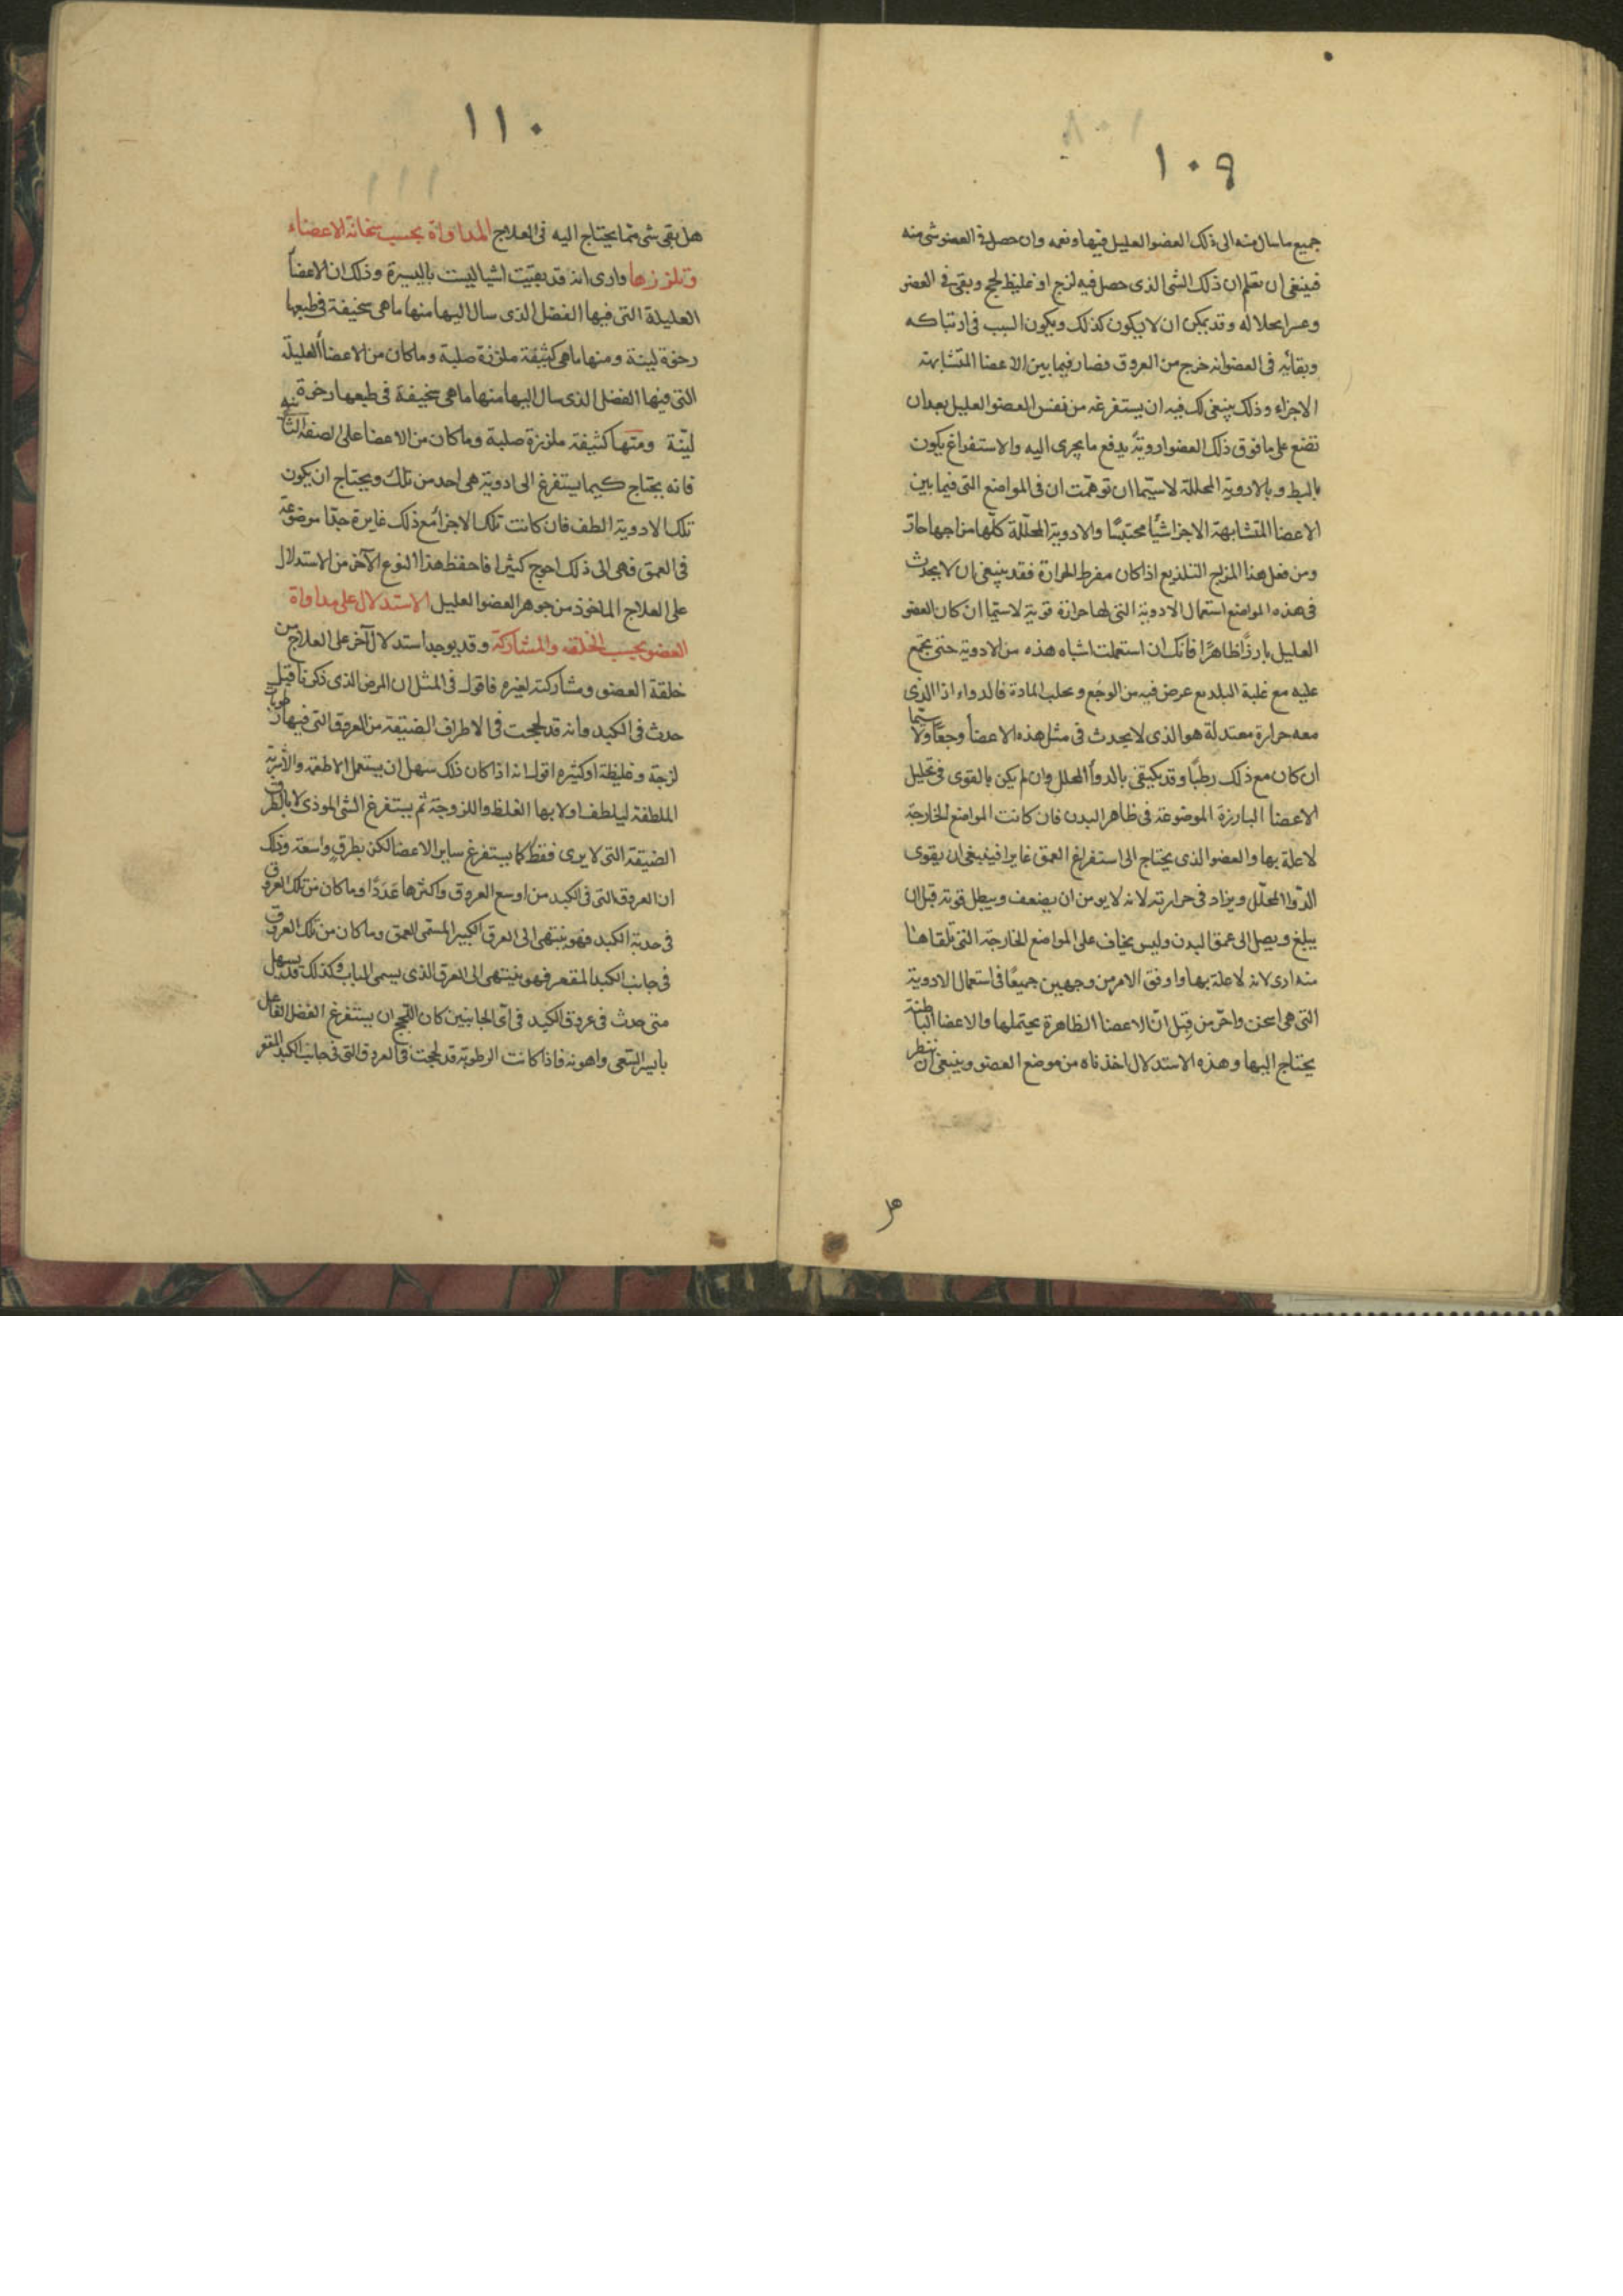 ١٠٩
جميع ما سال منه الى ذلك العضو العليل فيها ونعمه وان حصل فى العضو شى منه
فينبغى ان تعلم ان ذلك الشى الذى حصل فيه لزج او غليظ لحج وبقى فى العضو
وعسر انحلاله وقد يمكن ان لا يكون كذلك ويكون السبب فى ارتباكه
وبقائه فى العضو انه خرج من العروق فصار فيما بين الاعضا المتشابهة
الاجزاء وذلك ينبغى لك فيه ان يستفرغه من نفس العضو العليل بعد ان
تضع على ما فوق ذلك العضو ادوية يدفع ما يجرى اليه والاستفراغ يكون
بالبط وبالادوية المحللة لا سيّما ان توهّمت ان فى المواضع التى فيما بين
الاعضا المتشابهة الاجزا شيًا محتبسًا والادوية المحلّلة كلّها مزاجها حارّ
ومن فعل هذا المزاج التلذيع اذا كان مفرط الحرارة فقد ينبغى ان لا يحدث
فى هذه المواضع استعمال الادوية التى لها حرارة قوية لا سيما ان كان العضو
العليل بارزًا ظاهرًا فانك ان استعملت اشباه هذه من الادوية حتى يجتمع
عليه مع غلبة البلد مع عرض فيه من الوجع وجلب المادة فالدواء اذا الذى
معه حرارة معتدلة هو الذى لا يحدث فى مثل هذه الاعضا وجعًا ولا سيّما
ان كان مع ذلك رطبًا وقد يكتفى بالدوا المحلل وان لم يكن بالقوى فى تحليل
الاعضا البارزة الموضوعة فى ظاهر البدن فان كانت المواضع الخارجة
لا علة بها والعضو الذى يحتاج الى استفراغ العمق غايرا فينبغى ان يقوى
الدّوا المحلّل ويزاد فى حرارته لانه لا يومن ان يضعف ويبطل قوته قبل ان
يبلغ ويصل الى عمق البدن وليس يخاف على المواضع الخارجة التى تلقاها
منه ارى لانه لا علة بها واوفق الامر من وجهين جميعًا فى استعمال الادوية
التى هى اسخن واحرّ من قبل انّ الاعضا الظاهرة يحتملها والاعضا الباطنة
يحتاج اليها وهذه الاستدلال اخذناه من موضع العضو وينبغى ان ننظر
هل
١١٠
هل بقى شى مما يحتاج اليه فى العلاج المداواة بحسب سخافة الاعضاء
وتلززها وارى انه قد بقيت اشيا ليست باليسيرة وذلك ان الاعضا
العليلة التى فيها الفضل الذى سال اليها منها ما هى سخيفة فى طبعها
رخوة لينة ومنها ما هى كثيفة ملززة صلبة وما كان من الاعضا العليلة
التى فيها الفضل الذى سال اليها منها ما هى سخيفة فى طبعها رخوة
ليّنة ومنها كثيفة ملززة صلبة وما كان من الاعضا على الصنفة الثانية
فانه يحتاج كيما يستفرغ الى ادوية هى احد من تلك ويحتاج ان يكون
تلك الادوية الطف فان كانت تلك الاجزا مع ذلك غايرة جدّا موضوعة
فى العمق فهى الى ذلك احوج كثيرا فاحفظ هذا النوع الآخر من الاستدلال
على العلاج الماخوذ من جوهر العضو العليل الاستدلال على مداواة
العضو بحسب الخلقه والمشاركة وقد يوجد استدلال آخر على العلاج من
خلقة العضو ومشاركته لغيره فاقول فى المثل ان المرض الذى ذكرنا قبل
حدث فى الكبد وانه قد لحجت فى الاطراف الضيقة من العروق التى فيها رطوبات
لزجة وغليظة او كثيره اقول انه اذا كان ذلك سهل ان يستعمل الاطعمة والاشربة
الملطفة ليلطف اولا بها الغلظ واللزوجة ثم يستفرغ الشى الموذى لا بالطرق
الضيقة التى لا يرى فقط كما يستفرغ ساير الاعضا لكن بطرق واسعة وذلك
ان العروق التى فى الكبد من اوسع العروق واكثرها عَدَدًا وما كان من تلك العروق
فى حدبة الكبد فهو ينتهى الى العرق الكبير المسمى العمق وما كان من تلك العروق
فى جانب الكبد المقعر فهو ينتهى الى العرق الذى يسمى الباب وكذلك قد يسهل
متى حدث فى عروق الكبد فى اىّ الجانبين كان اللحج ان يستفرغ الفضل الفاعل
بايسر السّعى واهونه فاذا كانت الرطوبة قد لحجت فى العروق التى فى جانب الكبد المقعر